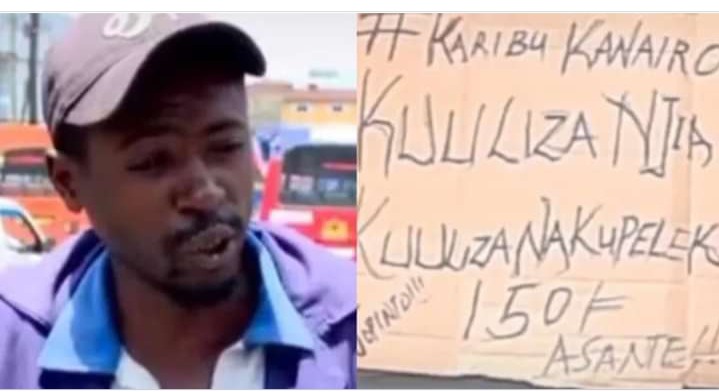 #KARIBU KANAIRO
KUULIZA NJIA
KUULIZA NAKUPELEK
150/=
ASANTE!!